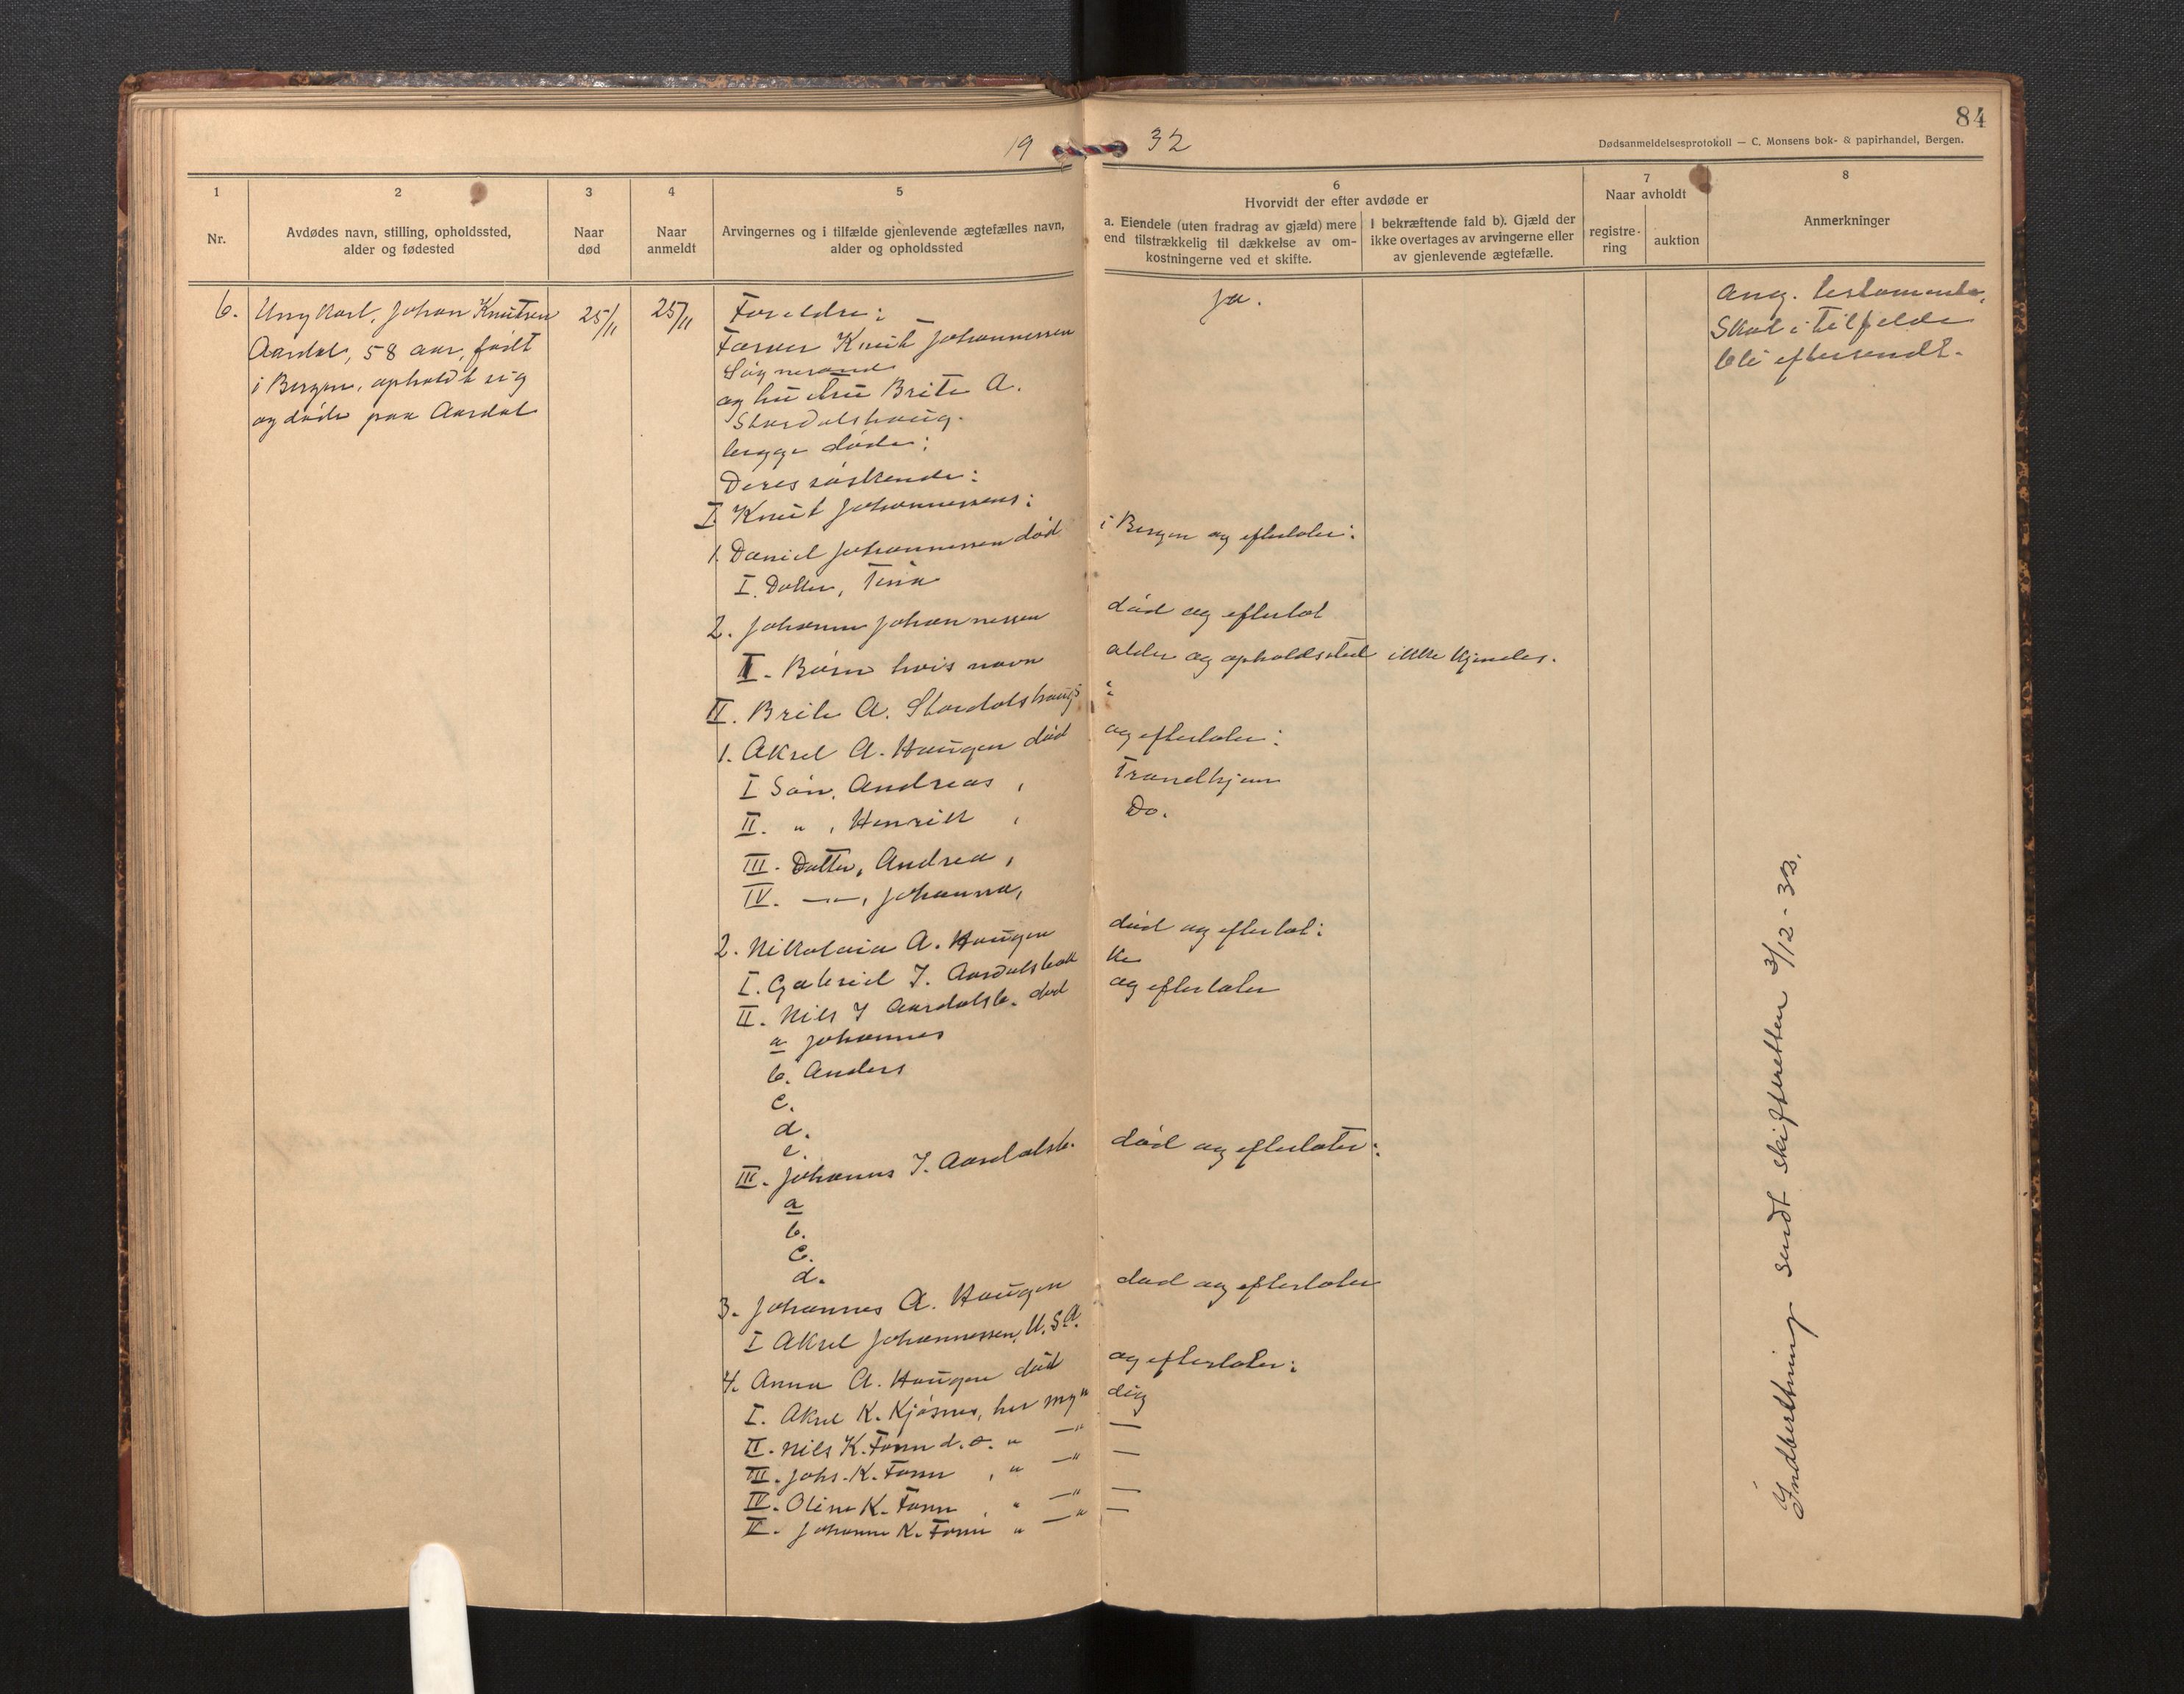 84
19 32
Dødsanmeldelsesprotokoll — C. Monsens bok- & papirhandel, Bergen.
1
Nr.
2
Avdødes navn, stilling, opholdssted,
alder og fødested
3
Naar
død
4
Naar
anmeldt
5
Arvingernes og i tilfælde gjenlevende ægtefælles navn,
alder og opholdssted
6
Hvorvidt der efter avdøde er
a. Eiendele (uten fradrag av gjæld) mere
end tilstrækkelig til dækkelse av om-
kostningerne ved et skifte.
I bekræftende fald b). Gjæld der
ikke overtages av arvingerne eller
av gjenlevende ægtefælle.
7
Naar avholdt
registre-
ring
auktion
8
Anmerkninger
6.
Ungkarl, Johan Knutsen
Aardal, 58 aar, født
i Bergen, opholdt sig
og døde paa Aardal
25/11
25/11
Foreldre:
Farver Knut Johannessen
Søgnesand
og hustru Brite A.
Stordalshaug.
begge døde:
Deres søskende:
I Knut Johannessens:
1. Daniel Johannessen død i Bergen og efterlater:
I. Datter, Tina
2. Johanne Johannessen død og efterlot
I. Børn hvis navn alder og opholdssted ikke kjendes.
II. Brite A. Stordalshaug's :
1. Aksel A. Haugen død og efterlater:
I Søn, Andreas , Trondhjem
II. " , Henrik , Do.
III. Datter, Andrea,
IV. —"—, Johanna,
2. Nikolaia A. Haugen død og efterlot:
I. Gabriel J. Aardalsbakke
II. Nils J Aardalsb. død og efterlater
a Johannes
b. Anders
c.
d.
e.
III. Johannes J. Aardalsb. død og efterlater:
a
b.
c.
d.
3. Johannes A. Haugen død og efterlater
I Aksel Johannessen, U.S.A.
4. Anna A. Haugen død og efterlater:
I. Aksel K. Kjøsnes, her myndig
II. Nils K. Fonn d.o. " —" —
III. Johs. K. Fonn , " —" —
IV. Oline K. Fonn , " —" —
V. Johanne K. Fonn " —" —
ja.
Ang. testamente,
Skal i tilfelde
bli eftersendt.
Indberetning sendt skifteretten 3/12-33.